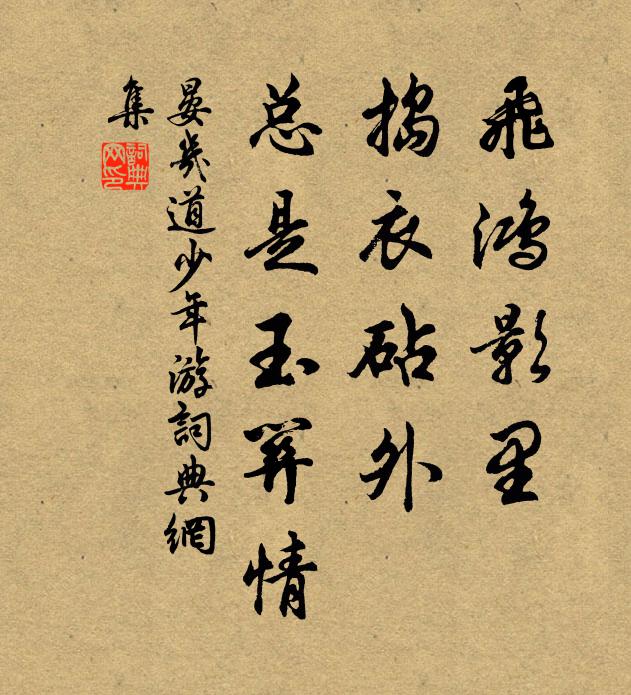 飛鴻影里
搗衣砧外
总是玉關情
晏幾道少年游詞典網
集
詞典
网印